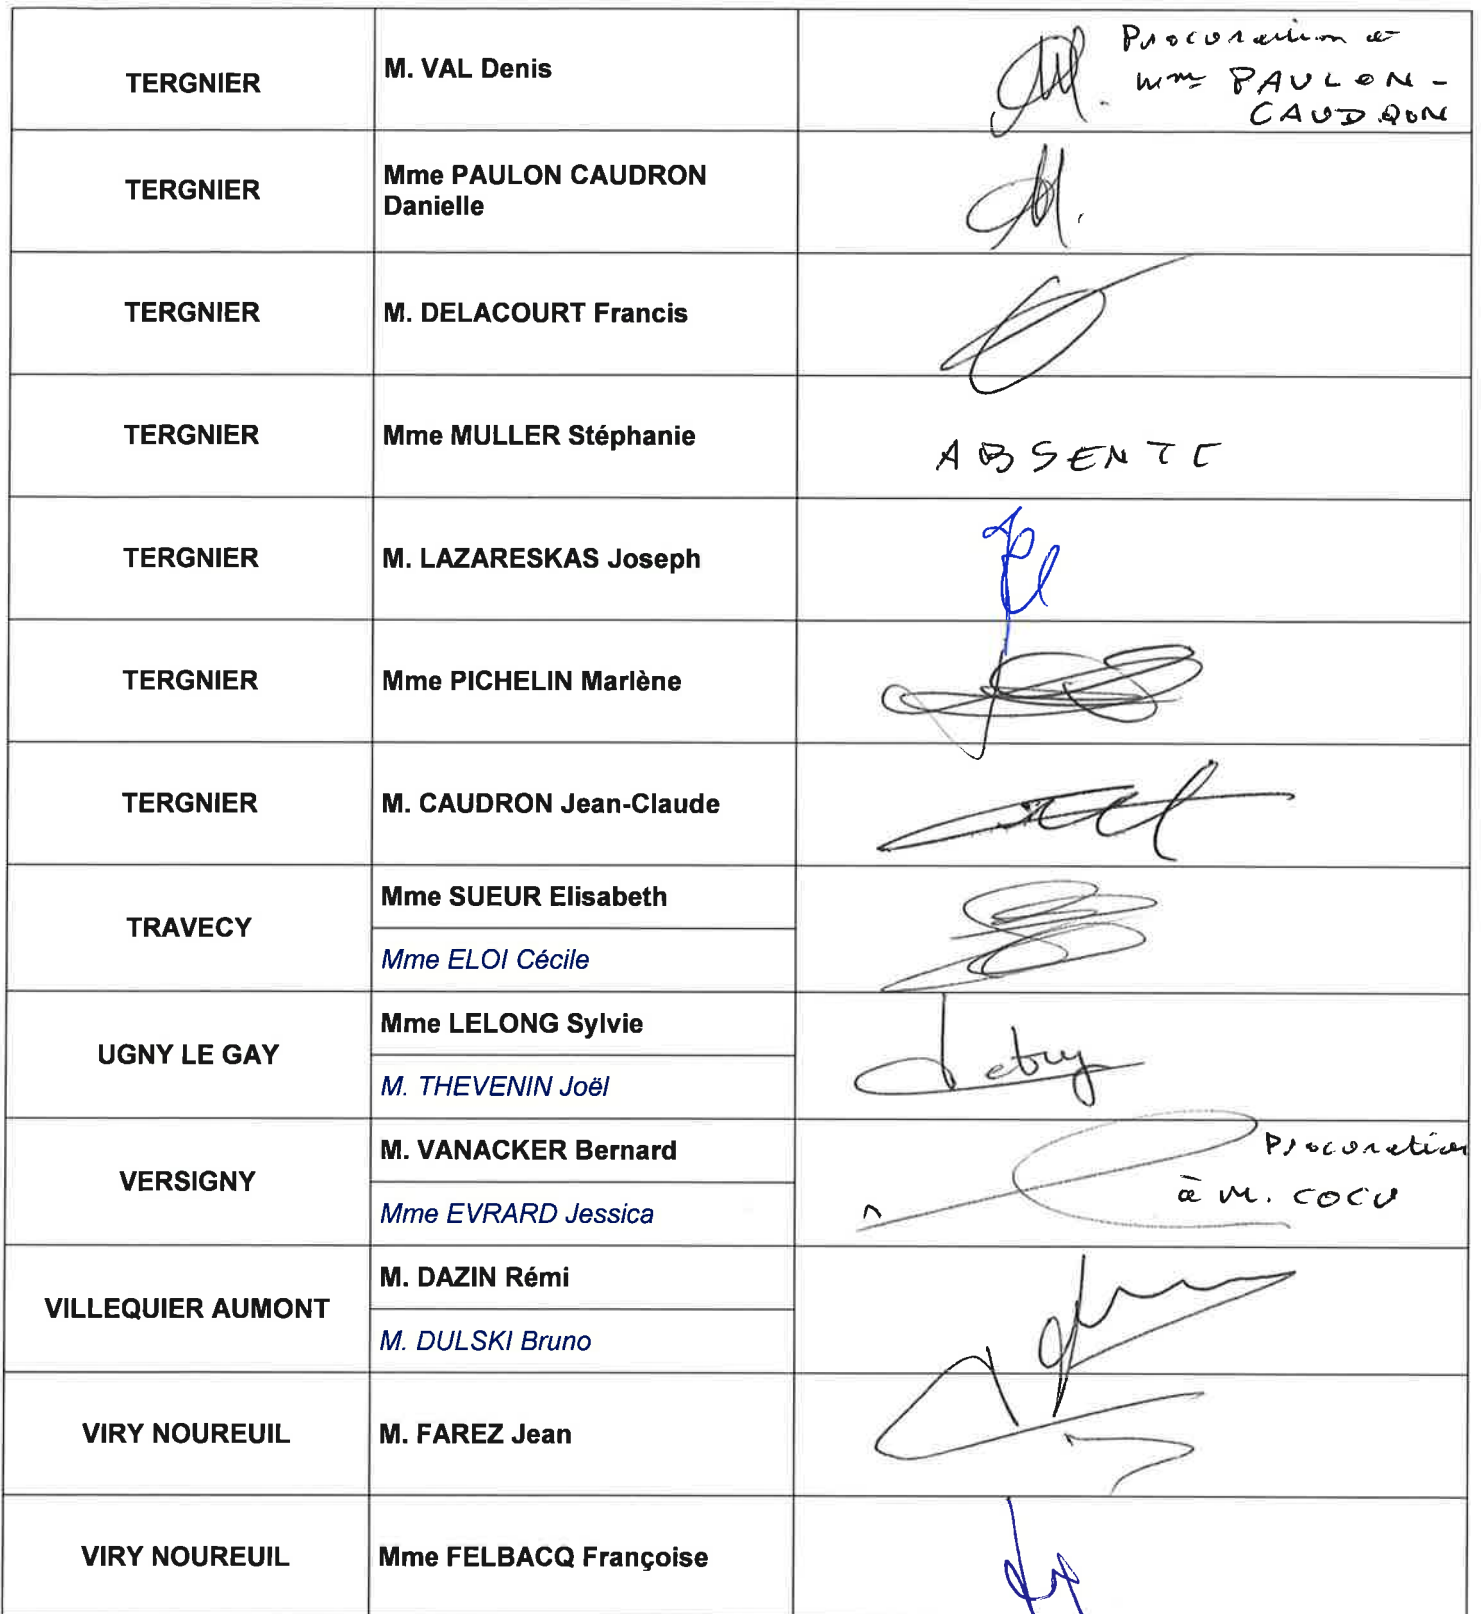 TERGNIER
M. VAL Denis
Procuration à
Mme PAULON-
CAUDRON
TERGNIER
Mme PAULON CAUDRON
Danielle
TERGNIER
M. DELACOURT Francis
TERGNIER
Mme MULLER Stéphanie
ABSENTE
TERGNIER
M. LAZARESKAS Joseph
TERGNIER
Mme PICHELIN Marlène
TERGNIER
M. CAUDRON Jean-Claude
TRAVECY
Mme SUEUR Elisabeth
Mme ELOI Cécile
UGNY LE GAY
Mme LELONG Sylvie
M. THEVENIN Joël
VERSIGNY
M. VANACKER Bernard
Mme EVRARD Jessica
Procuration
à M. COCU
VILLEQUIER AUMONT
M. DAZIN Rémi
M. DULSKI Bruno
VIRY NOUREUIL
M. FAREZ Jean
VIRY NOUREUIL
Mme FELBACQ Françoise